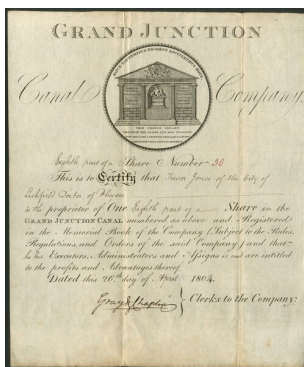 GRAND JUNCTION
Canal Company
Eighth part of a Share Number 50
This is to Certify that Trevor Jones of the City of
Lichfield Doctor of
is the proprietor of One Eighth part of a Share in the
GRAND JUNCTION CANAL numbered as above and Registered
in the Memorial Book of the Company (Subject to the Rules,
Regulations, and Orders of the said Company) and that
his Executors, Administrators and Assigns is and are intitled
to the profits and Advantages thereof
Dated this 26th day of April 1804
Gray & Chaplin Clerks to the Company: